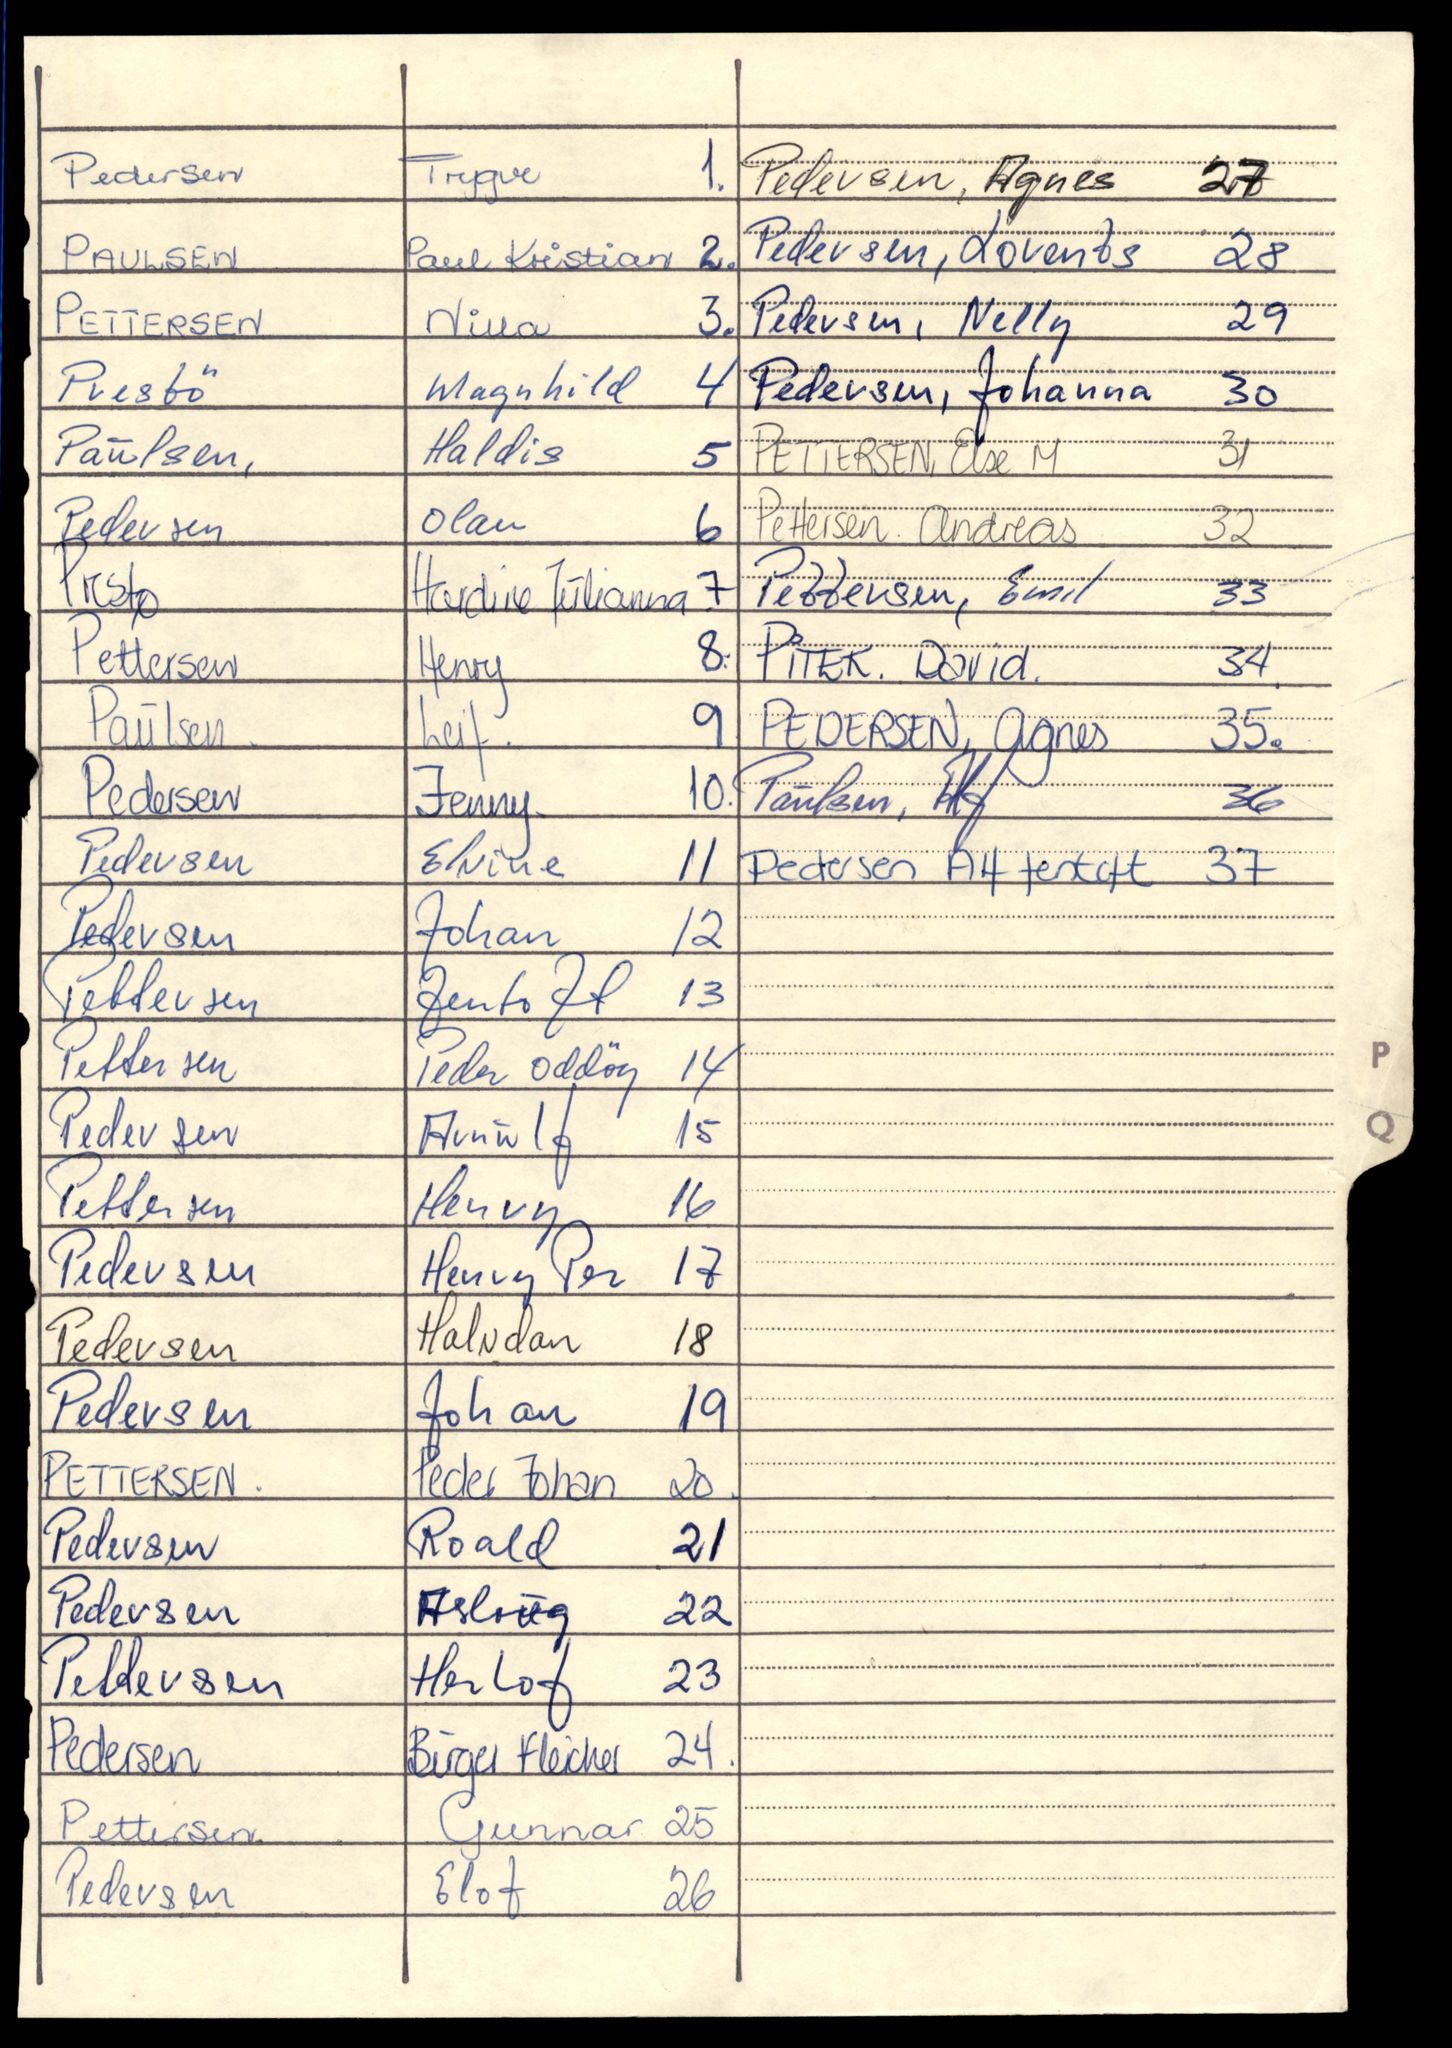 Pedersen Trygve 1.
PAULSEN Paul Kristian 2.
PETTERSEN Nilla 3.
Prestö Magnhild 4
Paulsen, Haldis 5
Pedersen Olau 6
Presto Hardine Julianna 7
Pettersen Henry 8.
Paulsen. Leif. 9
Pedersen Jenny. 10.
Pedersen Elvine 11
Pedersen Johan 12
Pettersen Jentoft 13
Pettersen Peder Oddöy 14
Pedersen Arnulf 15
Pettersen Henry 16
Pedersen Henry Per 17
Pedersen Halvdan 18
Pedersen Johan 19
PETTERSEN. Peder Johan 20.
Pedersen Roald 21
Pedersen Aslaug 22
Pettersen Herlof 23
Pedersen Birger Fleicher 24.
Pettersen. Gunnar 25
Pedersen Elof 26
Pedersen, Agnes 27
Pedersen, Lorents 28
Pedersen, Nelly 29
Pedersen, Johanna 30
PETTERSEN, Else M 31
Pettersen. Andreas 32
Pettersen, Emil 33
PITEK. David. 34.
PEDERSEN, Agnes 35.
Paulsen, 36
Pedersen Alf Jentoft 37
P
Q